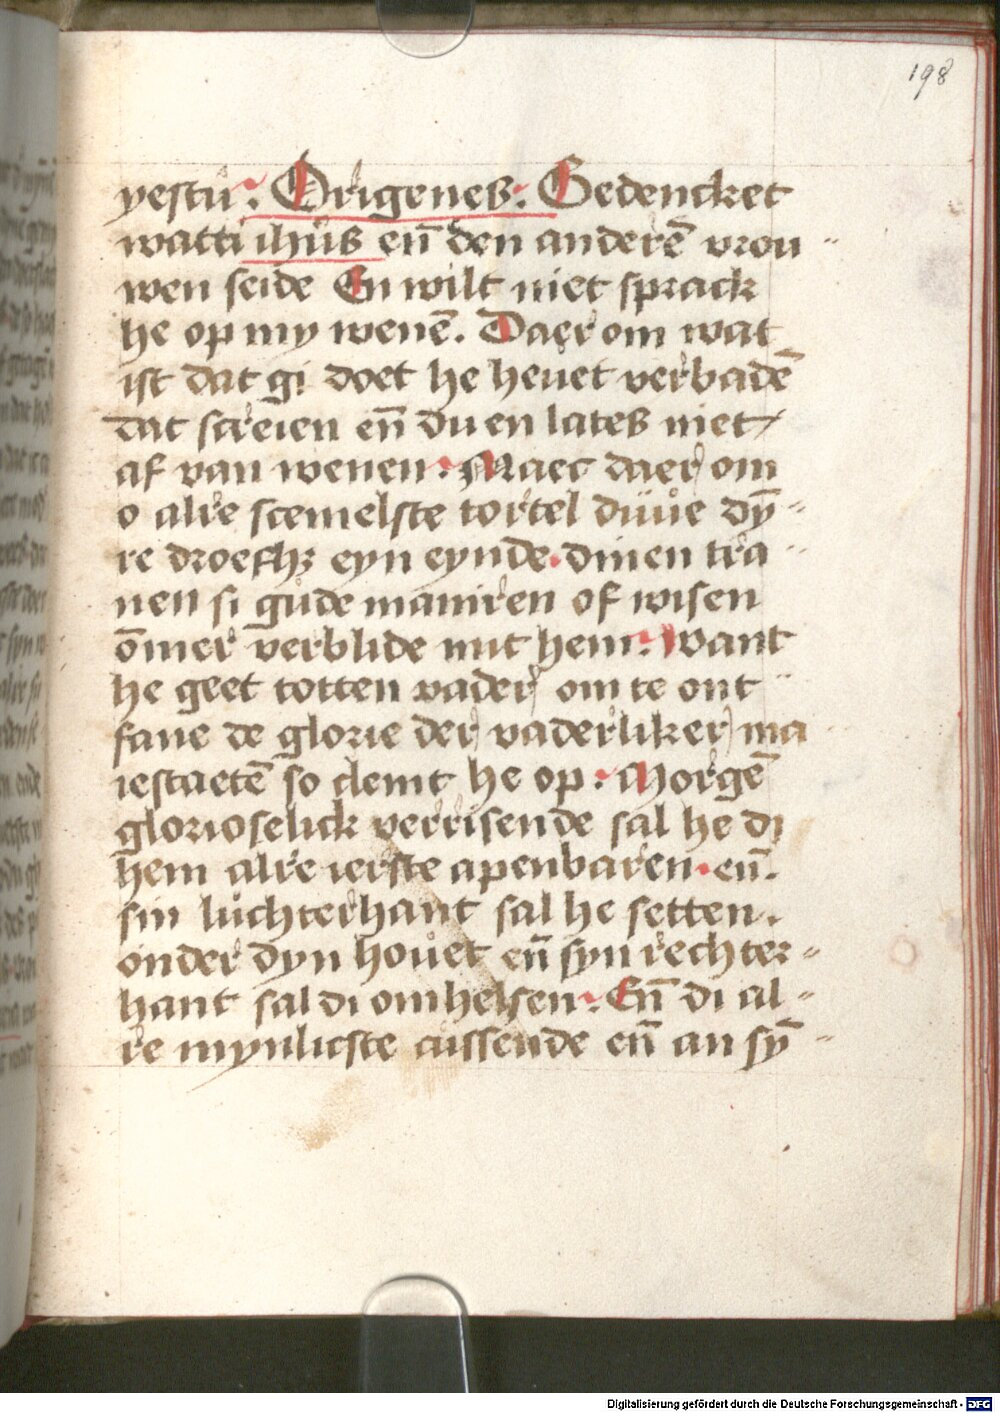 198
yestu. Origenes. Gedencket
watti ihūs en̄ den anderē vrou
wen seide En wilt niet sprack
he op my wenē. Daer om wat
ist dat gi doet he heuet verbadē
dat screien en̄ du en lates niet
af van wenen. Maec daer om
o alre scemelste tortel düue dȳ
re droefhz eyn eynde. dinen tra
nen si gude maniren of wisen
ōmer verblide mit hem. Want
he geet totten vader om te ont
fane de glorie der vaderliker ma
iestaetē so clemt he op. Morgē
glorioselick verrisende sal he di
hem alre ierste apenbaren. en̄.
sin luchterhant sal he setten.
onder dyn houet en̄ syn rechter
hant sal di omhelsen. En̄ di al
re mynlicste cussende en̄ an sȳ
Digitalisierung gefördert durch die Deutsche Forschungsgemeinschaft - DFG